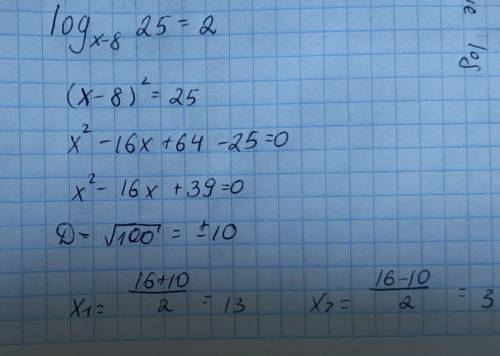 log_{x-8} 25 = 2
(x-8)² = 25
x² - 16x + 64 - 25 = 0
x² - 16x + 39 = 0
D = √100 = ±10
x₁ = (16+10)/2 = 13    x₂ = (16-10)/2 = 3
log